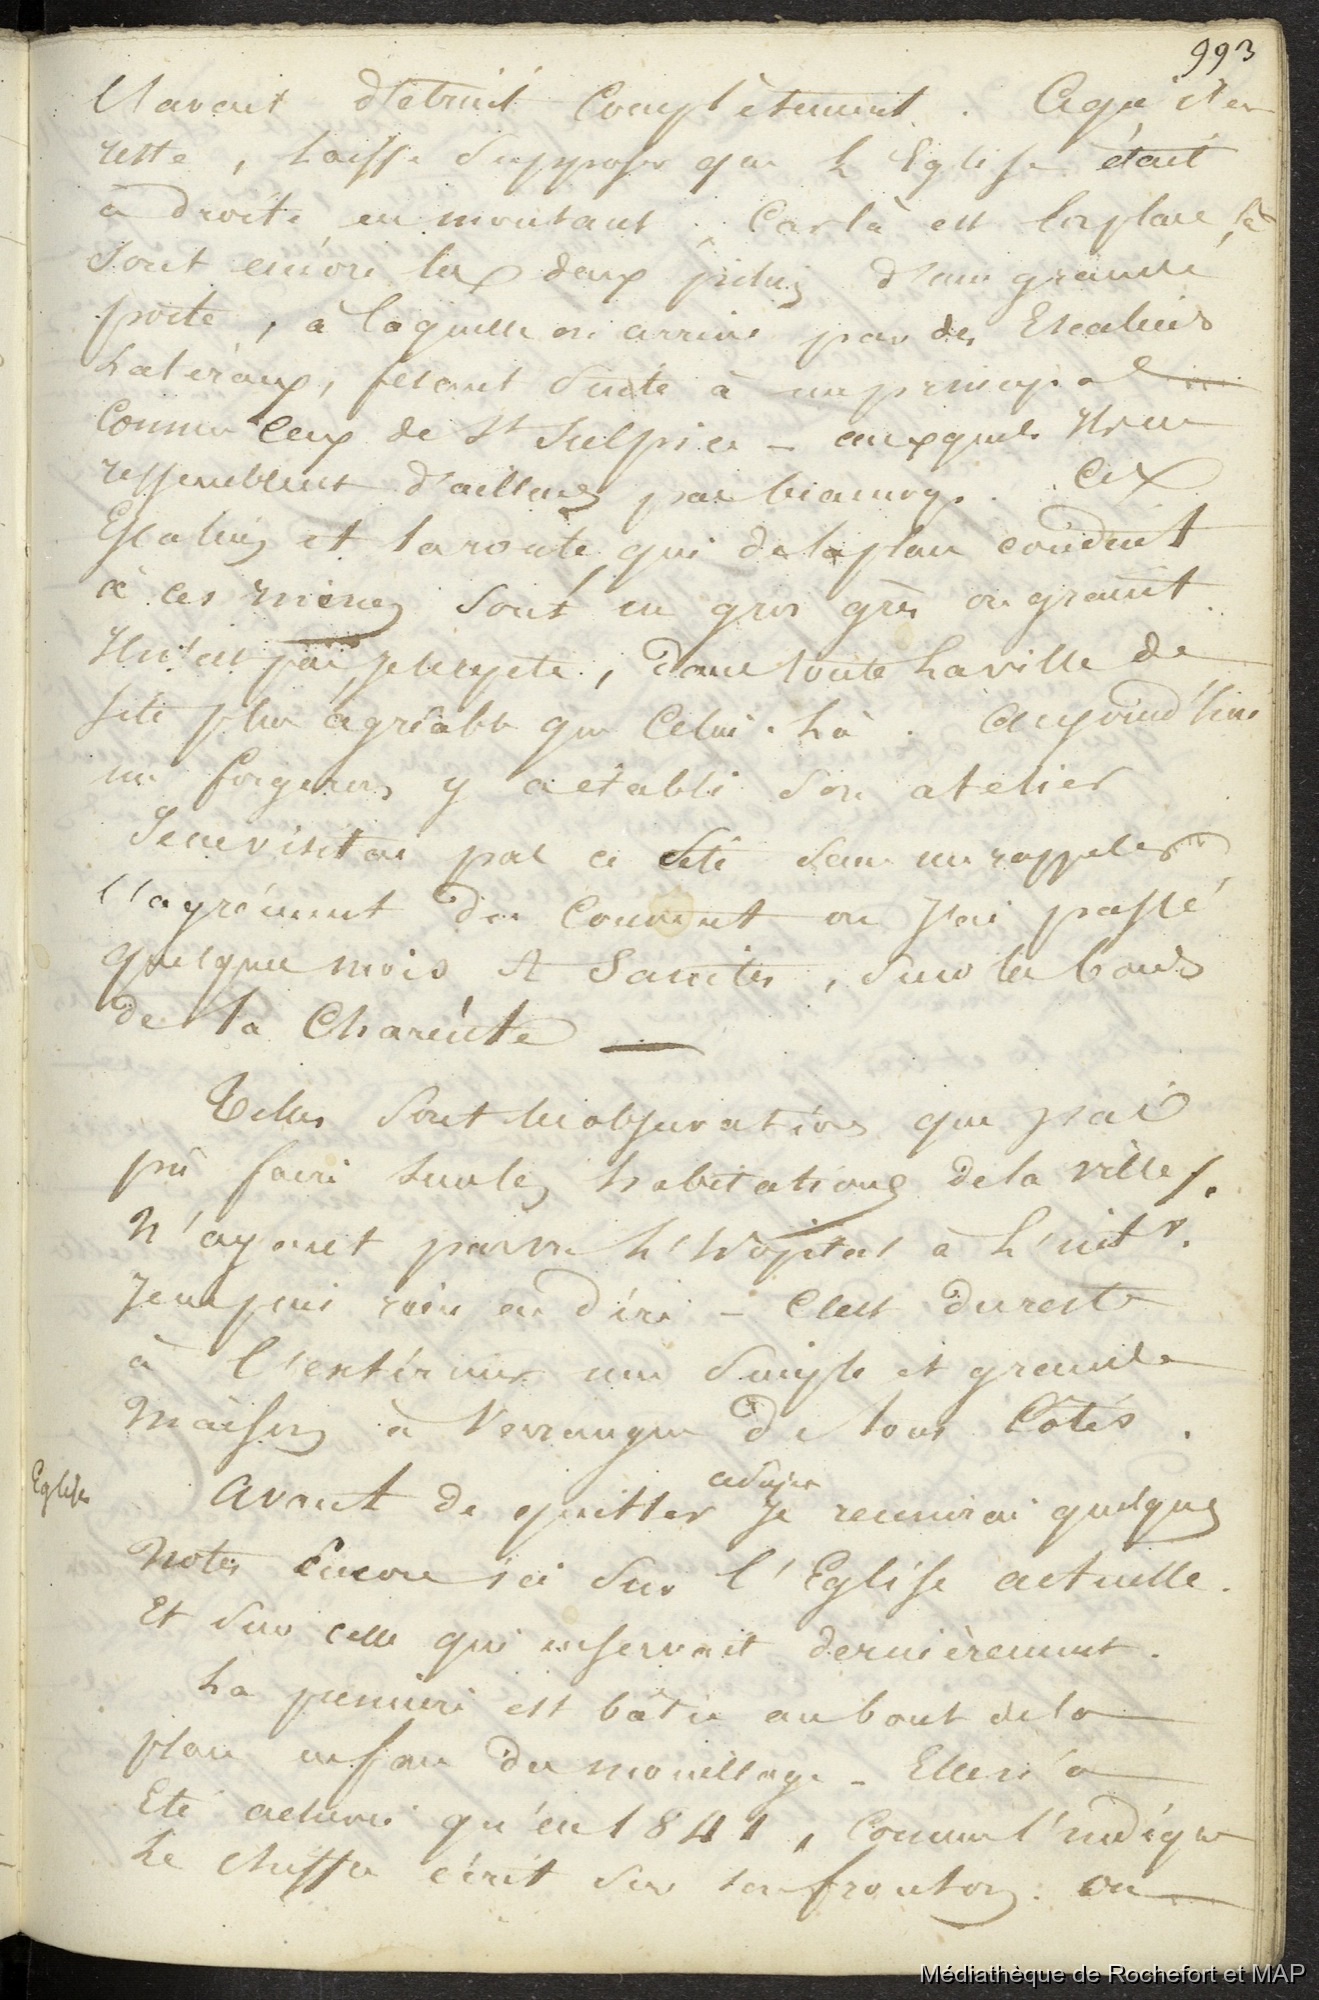 993
l'avait détruit complètement. Ce qu'il en
reste, laisse supposer que l'Eglise était
à droite en montant. Car là est la place, là
sont encore les deux piliers d'une grande
porte, à laquelle on arrive par des Escaliers
latéraux, fesant suite à un principal
comme ceux de St Sulpice _ auxquels ils ne
ressemblent d'ailleurs pas beaucoup. Ces
Escaliers et la route qui de la place conduit
à ces ruines sont en gros grès ou granit.
Il n'est pas, je le répète, dans toute la ville de
site plus agréable que celui-là. aujourd'hui
un forgeron y a établi son atelier
Je ne visitai pas ce site sans me rappeler
l'agrément du Couvent où j'ai passé
quelques mois à Saintes, sur les bords
de la Charente —
Telles sont les observations que j'ai
pû faire sur les habitations de la ville.
N'ayant pas vu l'hôpital à l'intr.
Je ne puis rien en dire _ C'est du reste
à l'extérieur une simple et grande
maison à Verangue de tous Côtés.
Eglises
Avant de quitter je réunirai quelques
notes encore ici sur l'Eglise actuelle.
Et sur celle qui en servait dernièrement.
La première est bâtie au bout de la
place en face du mouillage _ Elle n'a
Eté achevée qu'en 1841, comme l'indique
Le chiffre écrit sur son fronton. on
Médiathèque de Rochefort et MAP